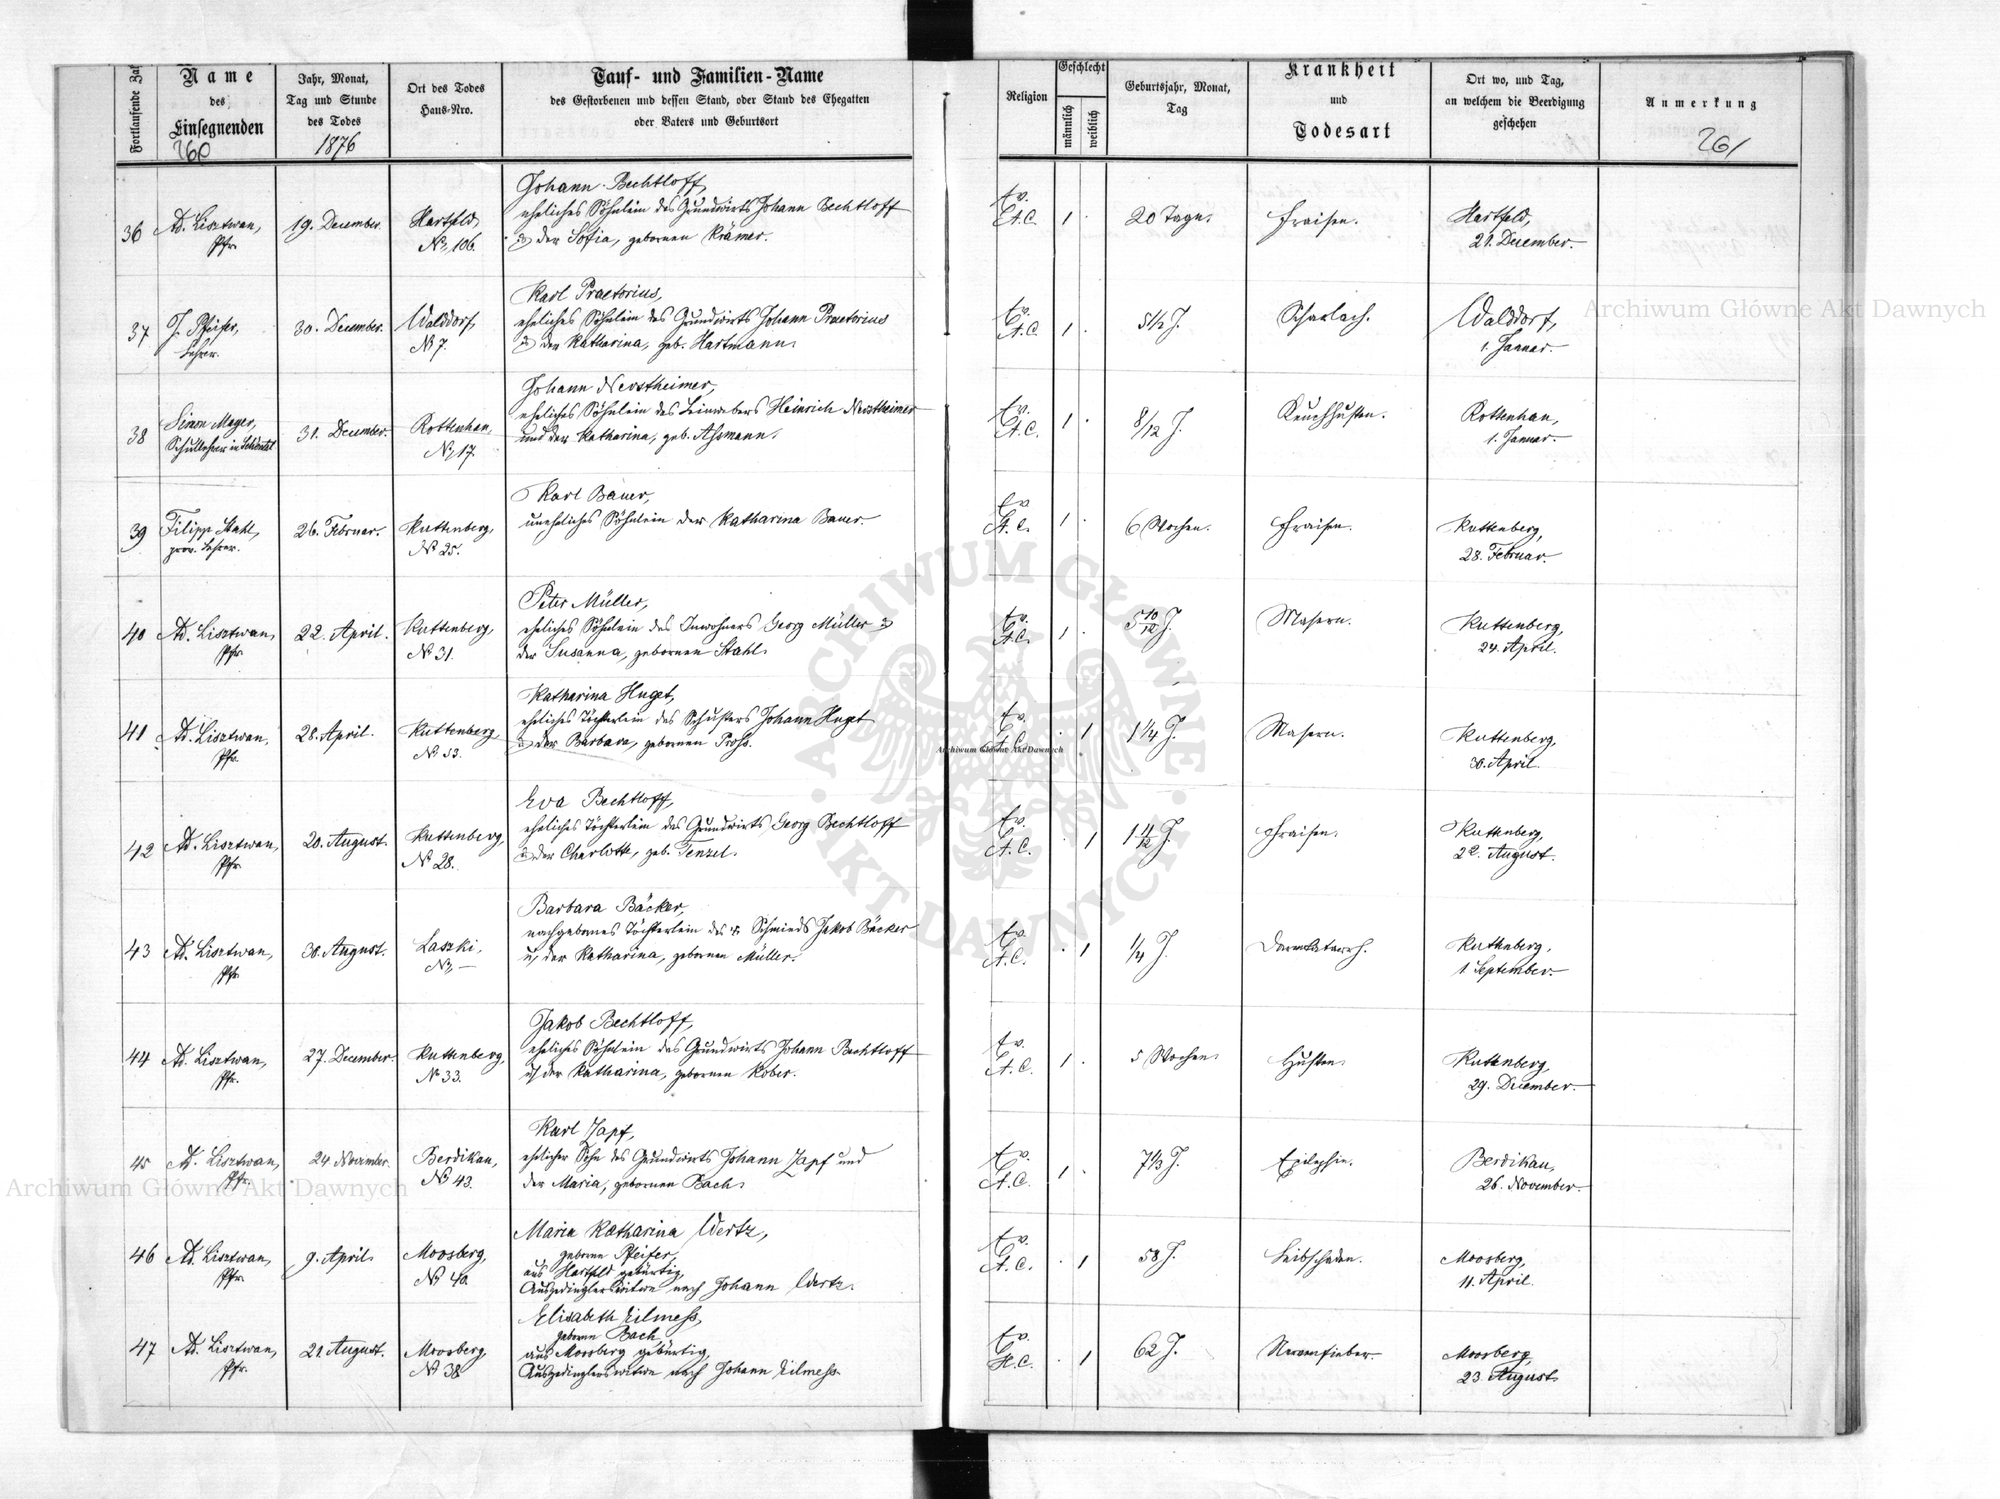 Fortlaufende Zahl
Name
des
Einsegnenden
260
Jahr, Monat,
Tag und Stunde
des Todes
1876
Ort des Todes
Haus-Nro.
Tauf- und Familien-Name
des Gestorbenen und dessen Stand, oder Stand des Ehegatten
oder Vaters und Geburtsort
Religion
Geschlecht
männlich
weiblich
Geburtsjahr, Monat,
Tag
Krankheit
und
Todesart
Ort wo, und Tag,
an welchem die Beerdigung
geschehen
Anmerkung
261
36
Ad. Lisztwan,
Pfr.
19. December.
Hartfeld,
No 106.
Johann Bechtloff,
eheliches Söhnlein des Grundwirts Johann Bechtloff
u. der Sofia, gebornen Krämer.
Ev.
A.C.
1
20 Tage.
Fraisen.
Hartfeld,
21. December.
37
J. Pfeifer,
Lehrer.
30. December.
Walddorf,
No 7.
Karl Praetorius,
eheliches Söhnlein des Grundwirts Johann Praetorius
u. der Katharina, geb. Hartmann.
Ev.
A.C.
1
5 1/2 J.
Scharlach.
Walddorf,
1. Januar.
38
Simon Mager,
Schullehrer in Schönthal
31. December.
Rottenhan,
No 17.
Johann Neostheimer,
eheliches Söhnlein des Leinwebers Heinrich Neostheimer
und der Katharina, geb. Assmann.
Ev.
A.C.
1
8/12 J.
Keuchhusten.
Rottenhan,
1. Januar.
39
Filipp Stahl,
prov. Lehrer.
26. Februar.
Kuttenberg,
No 25.
Karl Bauer,
uneheliches Söhnlein der Katharina Bauer.
Ev.
A.C.
1
6 Wochen.
Fraisen.
Kuttenberg,
28. Februar.
40
Ad. Lisztwan,
Pfr.
22. April.
Kuttenberg,
No 31.
Peter Müller,
eheliches Söhnlein des Inwohners Georg Müller u.
der Susanna, gebornen Stahl.
Ev.
A.C.
1
5 10/12 J.
Masern.
Kuttenberg,
24. April.
41
Ad. Lisztwan,
Pfr.
28. April.
Kuttenberg,
No 53.
Katharina Huget,
eheliches Töchterlein des Schusters Johann Huget
u. der Barbara, gebornen Pross.
Ev.
A.C.
1
1 1/4 J.
Masern.
Kuttenberg,
30. April.
42
Ad. Lisztwan,
Pfr.
20. August.
Kuttenberg,
No 28.
Eva Bechtloff,
eheliches Töchterlein des Grundwirts Georg Bechtloff
u. der Charlotte, geb. Tenzel.
Ev.
A.C.
1
1 11/12 J.
Fraisen.
Kuttenberg,
22. August.
43
Ad. Lisztwan,
Pfr.
30. August.
Laszki,
No —
Barbara Bäcker,
nachgebornes Töchterlein des v. Schmieds Jakob Bäcker
u. der Katharina, gebornen Müller.
Ev.
A.C.
1
1/4 J.
Darmkatarrh.
Kuttenberg,
1. September.
44
Ad. Lisztwan,
Pfr.
27. December.
Kuttenberg,
No 33.
Jakob Bechtloff,
eheliches Söhnlein des Grundwirts Johann Bechtloff
u. der Katharina, gebornen Kober.
Ev.
A.C.
1
5 Wochen
Husten.
Kuttenberg,
29. December.
45
Ad. Lisztwan,
Pfr.
24 November.
Berdikau,
No 43.
Karl Zapf,
ehelicher Sohn des Grundwirts Johann Zapf und
der Maria, gebornen Bach.
Ev.
A.C.
1
7 1/3 J.
Epilepsie.
Berdikau,
26. November.
46
Ad. Lisztwan,
Pfr.
9. April
Moosberg,
No 40.
Maria Katharina Wertz,
geborne Pfeifer,
aus Hartfeld gebürtig,
Ausgedinglerswitwe nach Johann Wertz.
Ev.
A.C.
1
58 J.
Leibschaden.
Moosberg,
11. April.
47
Ad. Lisztwan,
Pfr.
21. August.
Moosberg
No 38
Elisabeth Zilmess,
geborne Bach
aus Moosberg gebürtig,
Ausgedinglerswitwe nach Johann Zilmess.
Ev.
H.C.
1
62 J.
Nervenfieber.
Moosberg,
23. August
Archiwum Główne Akt Dawnych
Archiwum Główne Akt Dawnych
Archiwum Główne Akt Dawnych
ARCHIWUM GŁÓWNE AKT DAWNYCH